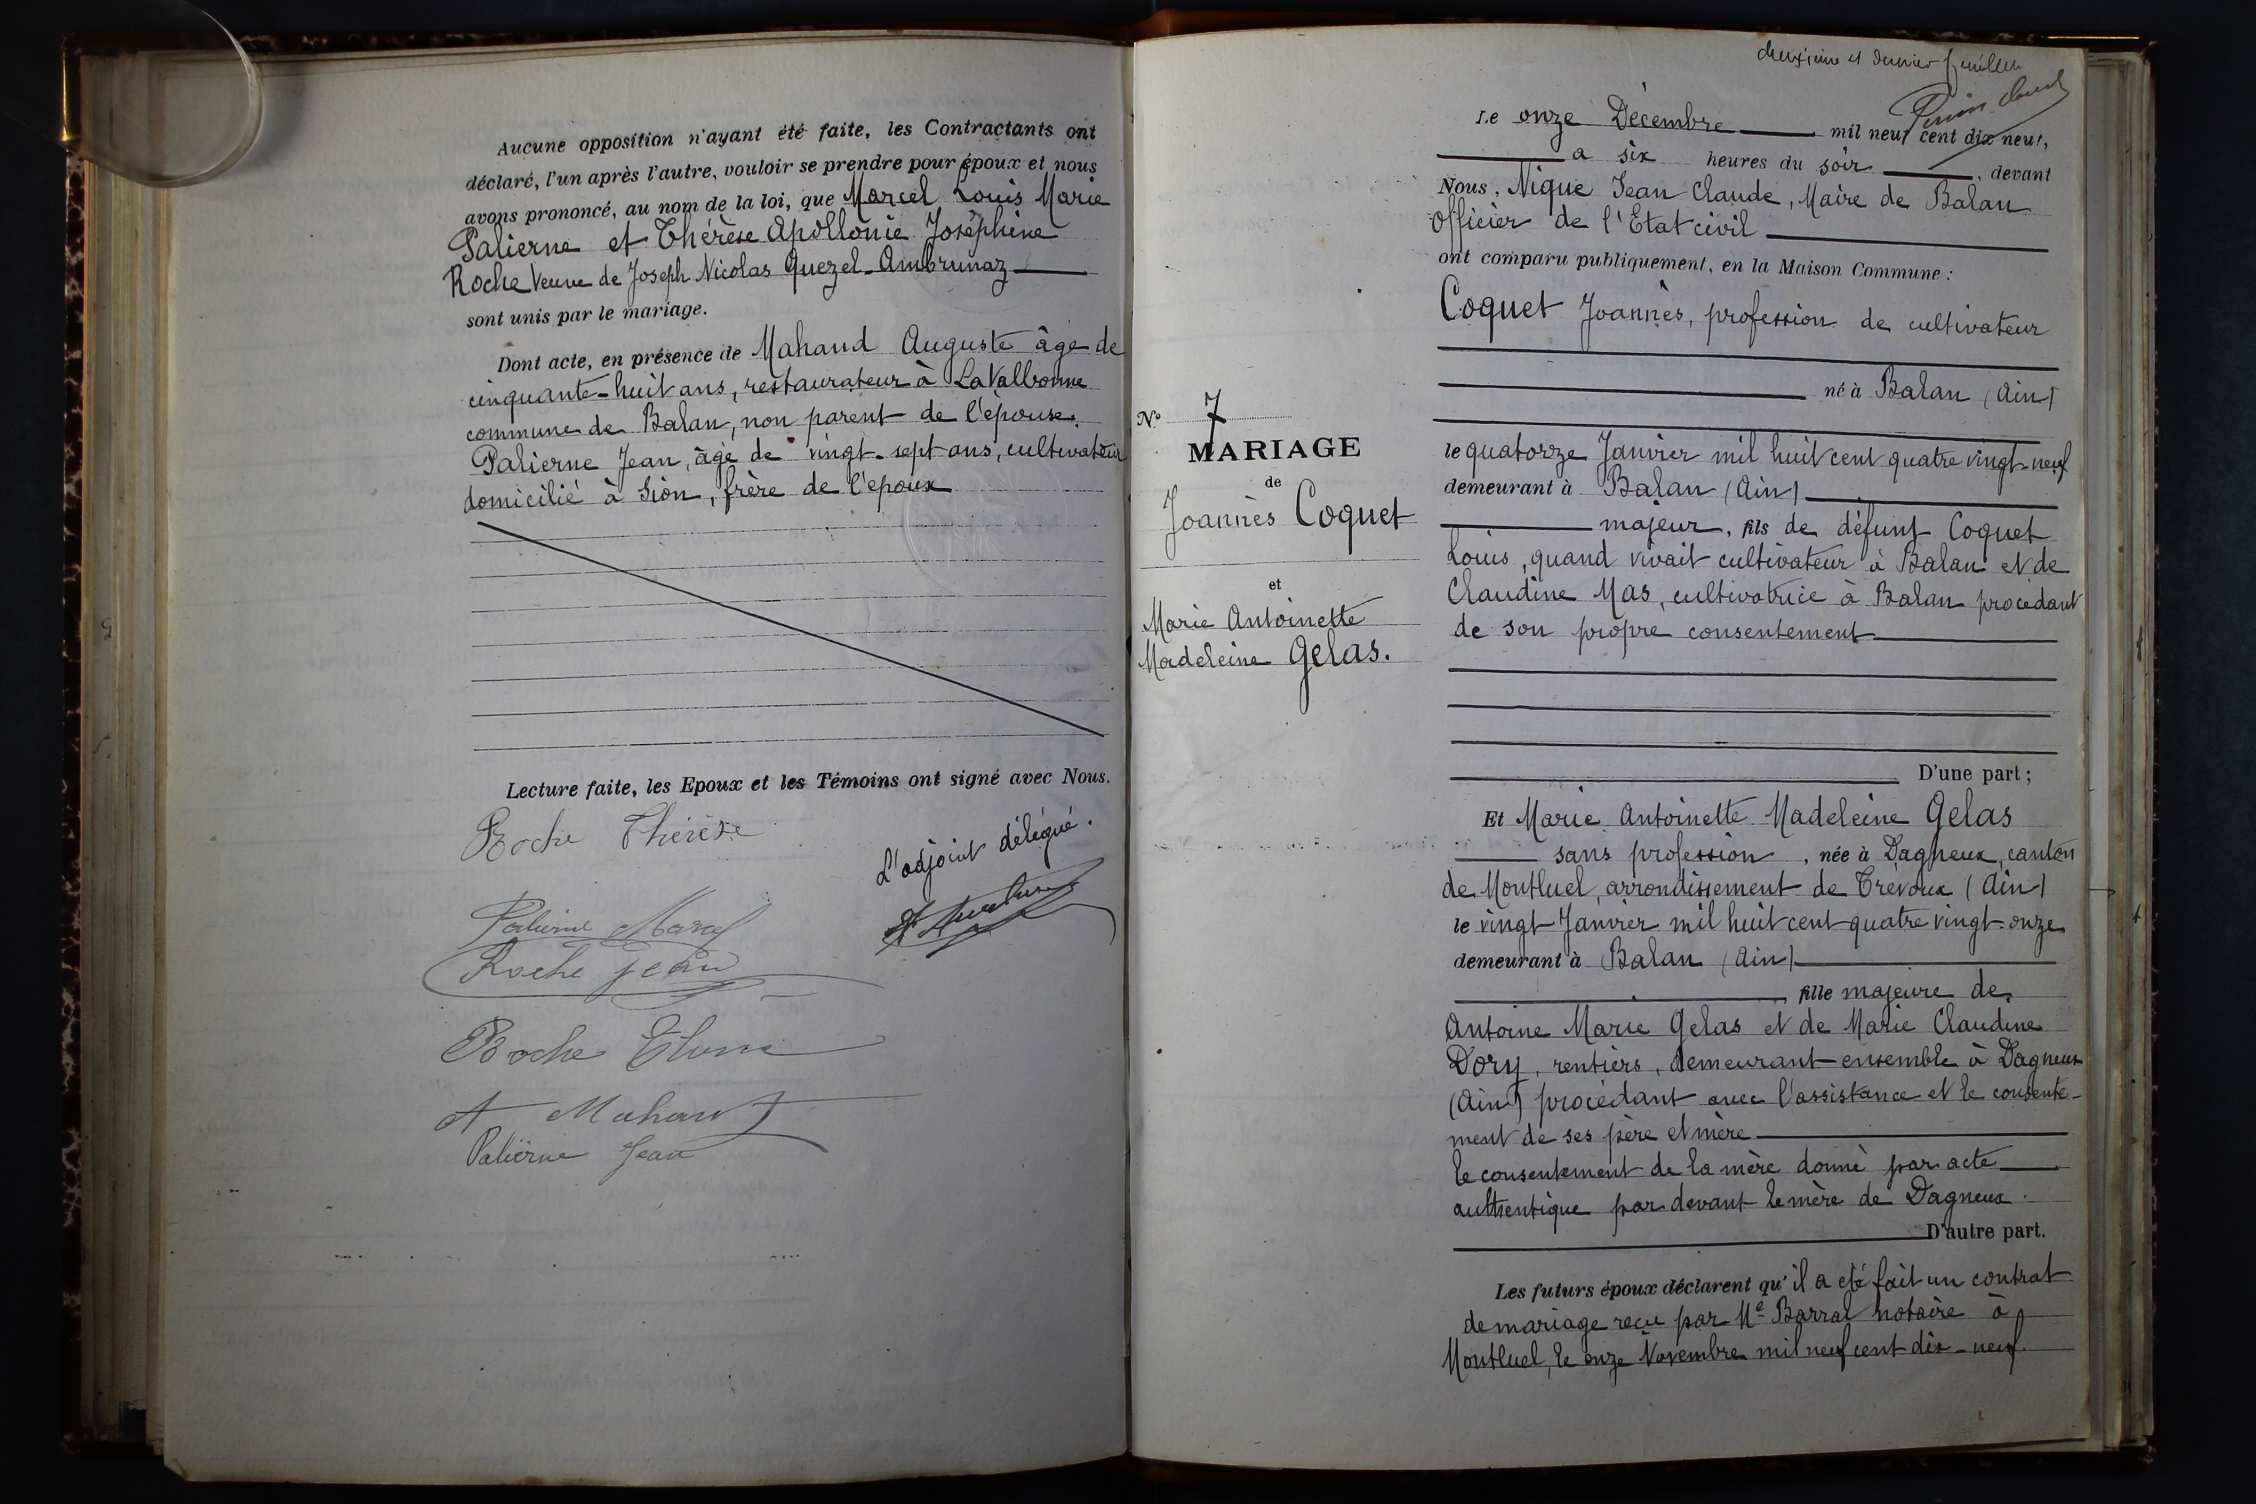 Aucune opposition n'ayant été faite, les Contractants ont
déclaré, l'un après l'autre, vouloir se prendre pour époux et nous
avons prononcé, au nom de la loi, que Marcel Louis Marie
Palierne et Thérèse Apollonie Joséphine
Roche Veuve de Joseph Nicolas Quezel-Ambrunaz
sont unis par le mariage.
Dont acte, en présence de Mahaud Auguste âgé de
cinquante-huit ans, restaurateur à La Valbonne
commune de Balan, non parent de l'épouse.
Palierne Jean, âgé de vingt-sept ans, cultivateur
domicilié à Sion, frère de l'époux
Lecture faite, les Epoux et les Témoins ont signé avec Nous.
Roche Thérèse
L'adjoint délégué.
Palierne Marcel
Roche Jean
Roche
A Mahaud
Palierne Jean
deuxième et dernier feuillet
Le onze Décembre mil neuf cent dix neuf,
à six heures du soir, devant
Nous, Nique Jean Claude, Maire de Balan
Officier de l'Etat civil
ont comparu publiquement, en la Maison Commune :
Coquet Joannès, profession de cultivateur
né à Balan (Ain)
le quatorze Janvier mil huit cent quatre vingt-neuf
demeurant à Balan (Ain)
majeur, fils de défunt Coquet
Louis, quand vivait cultivateur à Balan et de
Claudine Mas, cultivatrice à Balan procédant
de son propre consentement
D'une part ;
Et Marie Antoinette Madeleine Gelas
sans profession, née à Dagneux, canton
de Montluel, arrondissement de Trévoux (Ain)
le vingt Janvier mil huit cent quatre vingt-onze
demeurant à Balan (Ain)
fille majeure de
Antoine Marie Gelas et de Marie Claudine
Dory, rentiers, demeurant ensemble à Dagneux
(Ain) procédant avec l'assistance et le consente-
ment de ses père et mère
le consentement de la mère donné par acte
authentique par devant le mère de Dagneux.
D'autre part.
Les futurs époux déclarent qu'il a été fait un contrat
de mariage reçu par Me Barral notaire à
Montluel, le onze Novembre mil neuf cent dix-neuf.
No 7
MARIAGE
de
Joannès Coquet
et
Marie Antoinette
Madeleine Gelas.